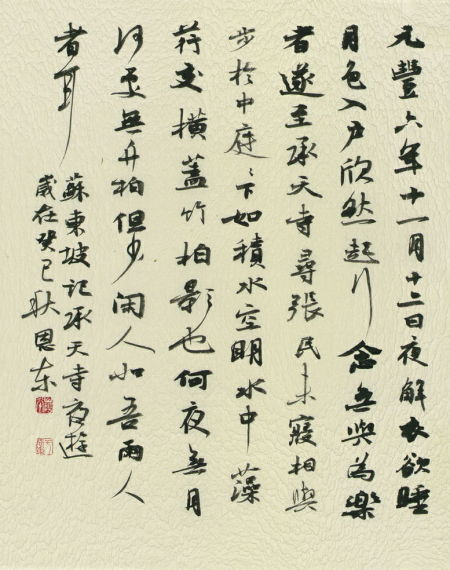 元豐六年十一月十二日夜解衣欲睡
月色入戶欣然起行念無與為樂
者遂至承天寺尋張民未寢相與
步於中庭ミ下如積水空明水中藻
荇交橫蓋竹柏影也何夜無月
何處無竹柏但少閑人如吾兩人
者耳
蘇東坡記承天寺夜遊
歲在癸巳秋恩東